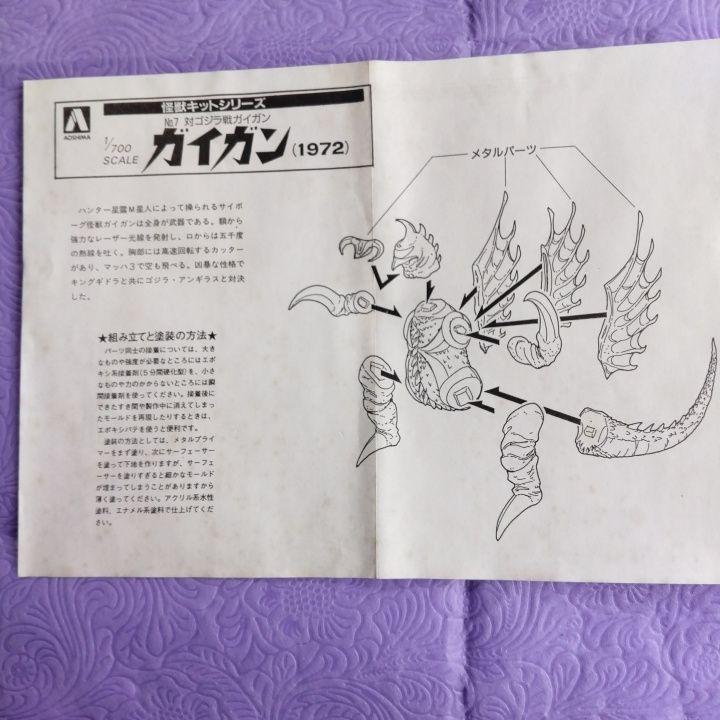 怪獣キットシリーズ
AOSHIMA
1/700
SCALE
№7 対ゴジラ戦ガイガン
ガイガン(1972)
メタルパーツ
ハンター星雲M星人によって操られるサイボ
ーグ怪獣ガイガンは全身が武器である。額から
強力なレーザー光線を発射し、口からは五千度
の熱線を吐く。胸部には高速回転するカッター
があり、マッハ3で空も飛べる。凶暴な性格で
キングギドラと共にゴジラ・アンギラスと対決
した。
★組み立てと塗装の方法★
パーツ同士の接着については、大き
なものや強度が必要なところにはエポ
キシ系接着剤(5分間硬化型)を、小さ
なものや力のかからないところには瞬
間接着剤を使ってください。接着後に
できたすき間や製作中に消えてしまっ
たモールドを再現したりするときは、
エポキシパテを使うと便利です。
塗装の方法としては、メタルプライ
マーをまず塗り、次にサーフェーサー
を塗って下地を作りますが、サーフェ
ーサーを塗りすぎると細かなモールド
が埋まってしまうことがありますから
薄く塗ってください。アクリル系水性
塗料、エナメル系塗料で仕上げてくだ
さい。